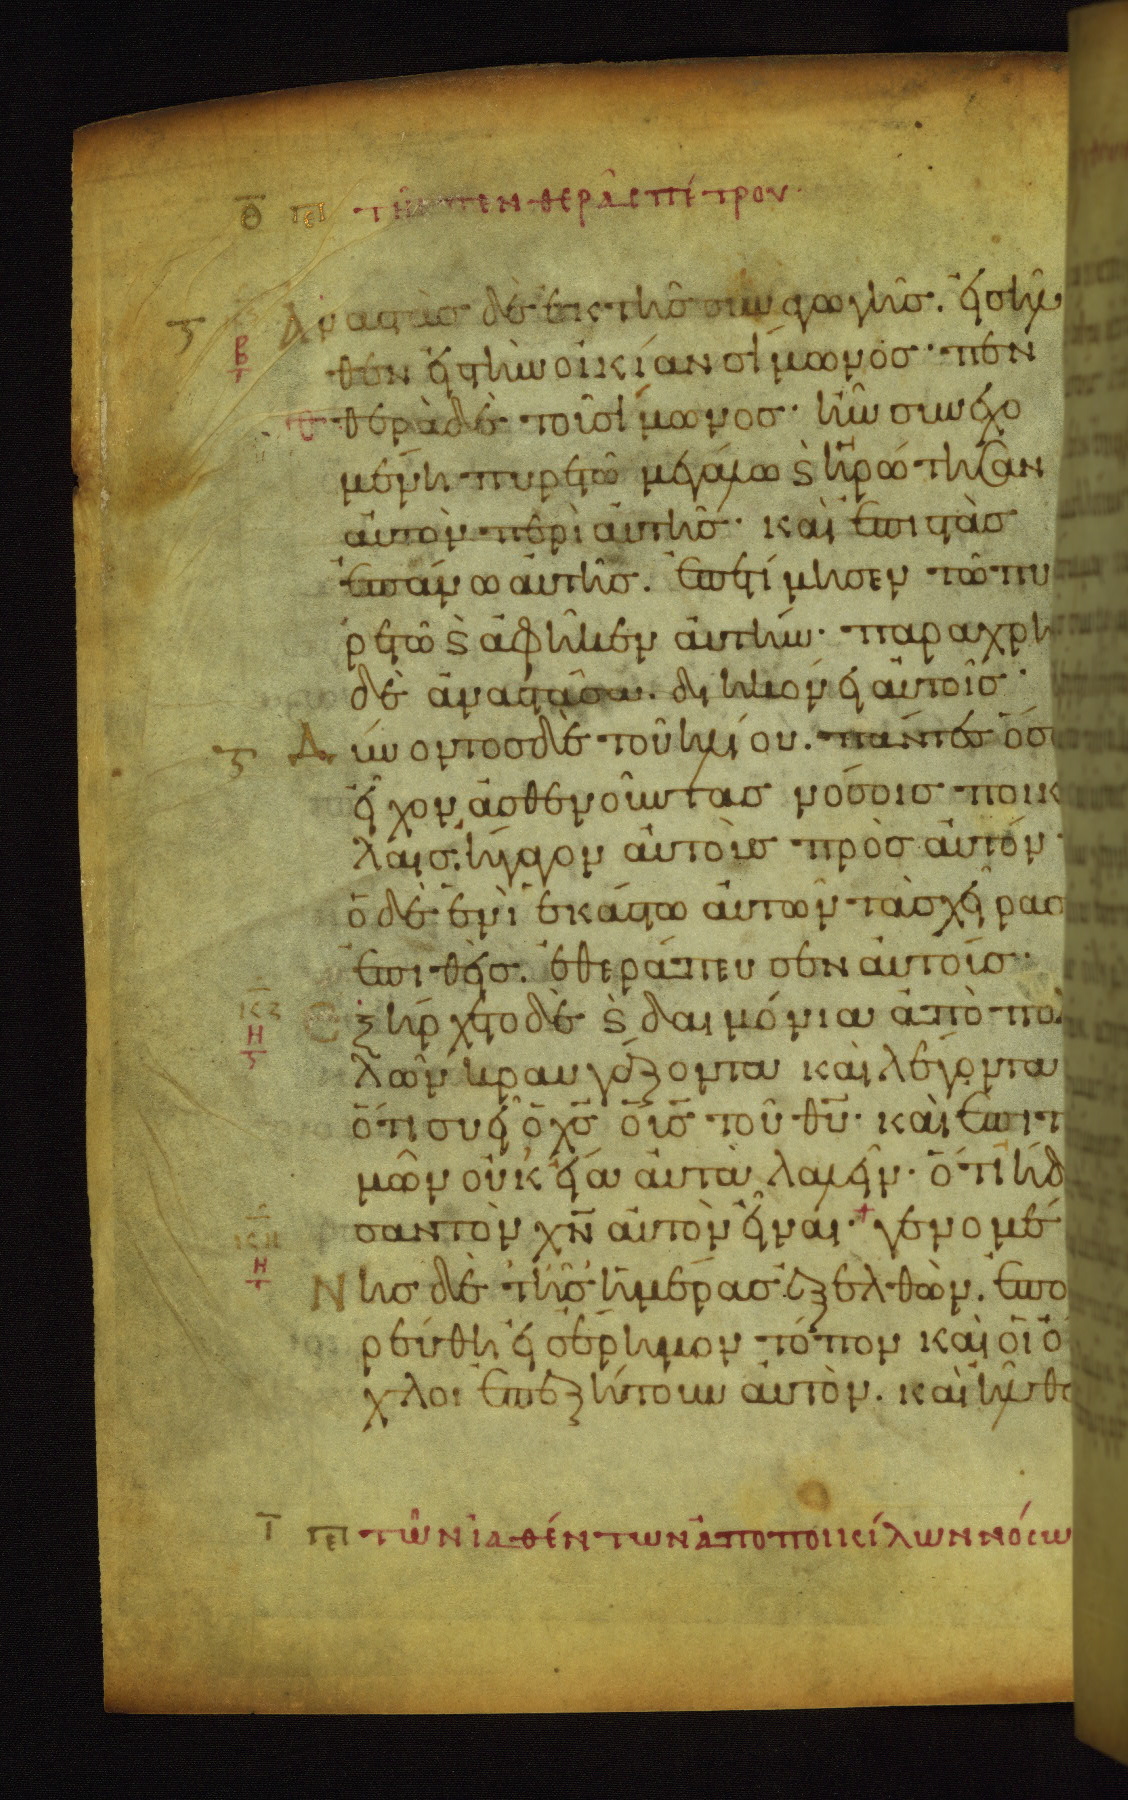 Θ πε τῆς πενθερᾶς πέτρου
Ἀναστὰς δὲ ἐκ τῆς συναγωγῆς. εἰσῆλ
θεν εἰς τὴν οἰκίαν σίμωνος· πεν
θερὰ δὲ τοῦ σίμωνος· ἦν συνεχο
μένη πυρετῶ μεγάλω ϗ ἠρώτησαν
αὐτὸν περὶ αὐτῆς· καὶ ἐπιστὰς
ἐπάνω αὐτῆς. ἐπετίμησεν τῶ πυ
ρετῶ ϗ ἀφῆκεν αὐτήν· παραχρῆ
δὲ ἀναστᾶσα. διηκόνει αὐτοῖς·
Δύνοντος δὲ τοῦ ἡλίου. πάντες ὅσ
εἶχον ἀσθενοῦντας νόσοις ποικ
λαις. ἤγαγον αὐτοὺς πρὸς αὐτόν·
ὁ δὲ ἑνὶ ἑκάστω αὐτῶν τὰς χεῖρας
ἐπιθεὶς. ἐθεράπευσεν αὐτούς·
κζ η Ἐξήρχετο δὲ ϗ δαιμόνια ἀπὸ πολ
λῶν κραυγάζοντα καὶ λέγοντα
ὅτι συ εἶ ὁ χς ὁ υς τοῦ θυ· καὶ ἐπιτ
μῶν οὐκ εἴα αὐτὰ λαλεῖν· ὅτι ἤδ
σαν τὸν χν αὐτὸν εἶναι·+ γενομέ
κη η νης δὲ τῆς ἡμέρας ἐξελθὼν. ἐπο
ρεύθη εἰς ἔρημον τόπον καὶ οἱ ὄ
χλοι ἐπεζήτουν αὐτὸν. καὶ ἦλθο
Ι πε τῶν ἰαθέντων ἀπο ποικίλων νόσω